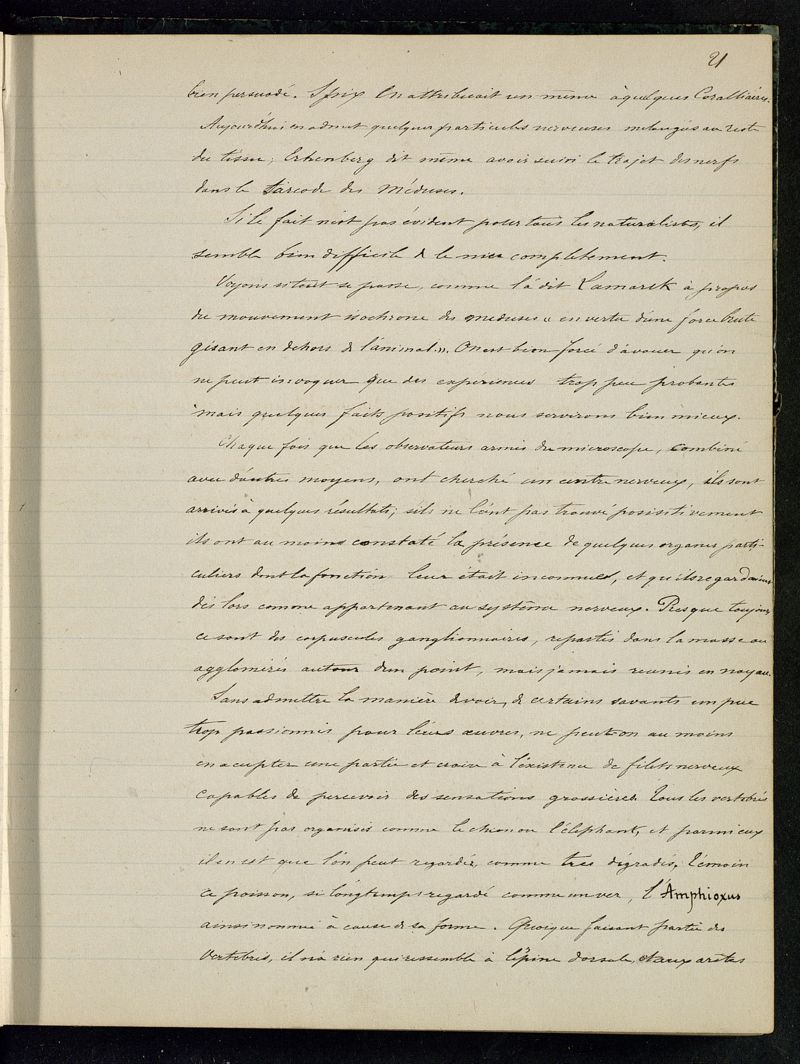 21
bien persuadé. Spix en attribuait un même à quelques Coralliaires.
Aujourd'hui on admet quelques particules nerveuses mélangées au reste
du tissu; Erhenberg dit même avoir suivi le trajet des nerfs
dans le Sarcode des Méduses.
Si le fait n'est pas évident pour tous les naturalistes, il
semble bien difficile de le nier complètement.
Voyons si tout se passe, comme l'a dit Lamarck à propos
du mouvement isochrone des méduses « en vertu d'une force brute
gisant en dehors de l'animal ». On est bien forcé d'avouer qu'on
ne peut invoquer que des expériences trop peu probantes
mais quelques faits positifs nous serviront bien mieux.
Chaque fois que les observateurs armés du microscope, combiné
avec d'autres moyens, ont cherché un centre nerveux, ils sont
arrivés à quelques résultats; s'ils ne l'ont pas trouvé posisitivement
ils ont au moins constaté la présence de quelques organes parti-
culiers dont la fonction leur était inconnue, et qu'ils regardaient
dès lors comme appartenant au système nerveux. Presque toujours
ce sont des corpuscules ganglionnaires, repartis dans la masse ou
agglomérés autour d'un point, mais jamais reunis en noyau.
Sans admettre la manière de voir, de certains savants un peu
trop passionnés pour leurs œuvres, ne peut on au moins
en accepter une partie et croire à l'éxistence de filets nerveux
capables de percevoir des sensations grossières. Tous les vertébrés
ne sont pas organisés comme le chien ou l'éléphant, et parmi eux
il en est que l'on peut regarder, comme très dégradés. Témoin
ce poisson, si longtemps regardé comme un ver, l'Amphioxus
ainsi nommé à cause de sa forme. Quoique faisant partie des
Vertébrés, il n'a rien qui ressemble à l'épine dorsale, et aux arêtes